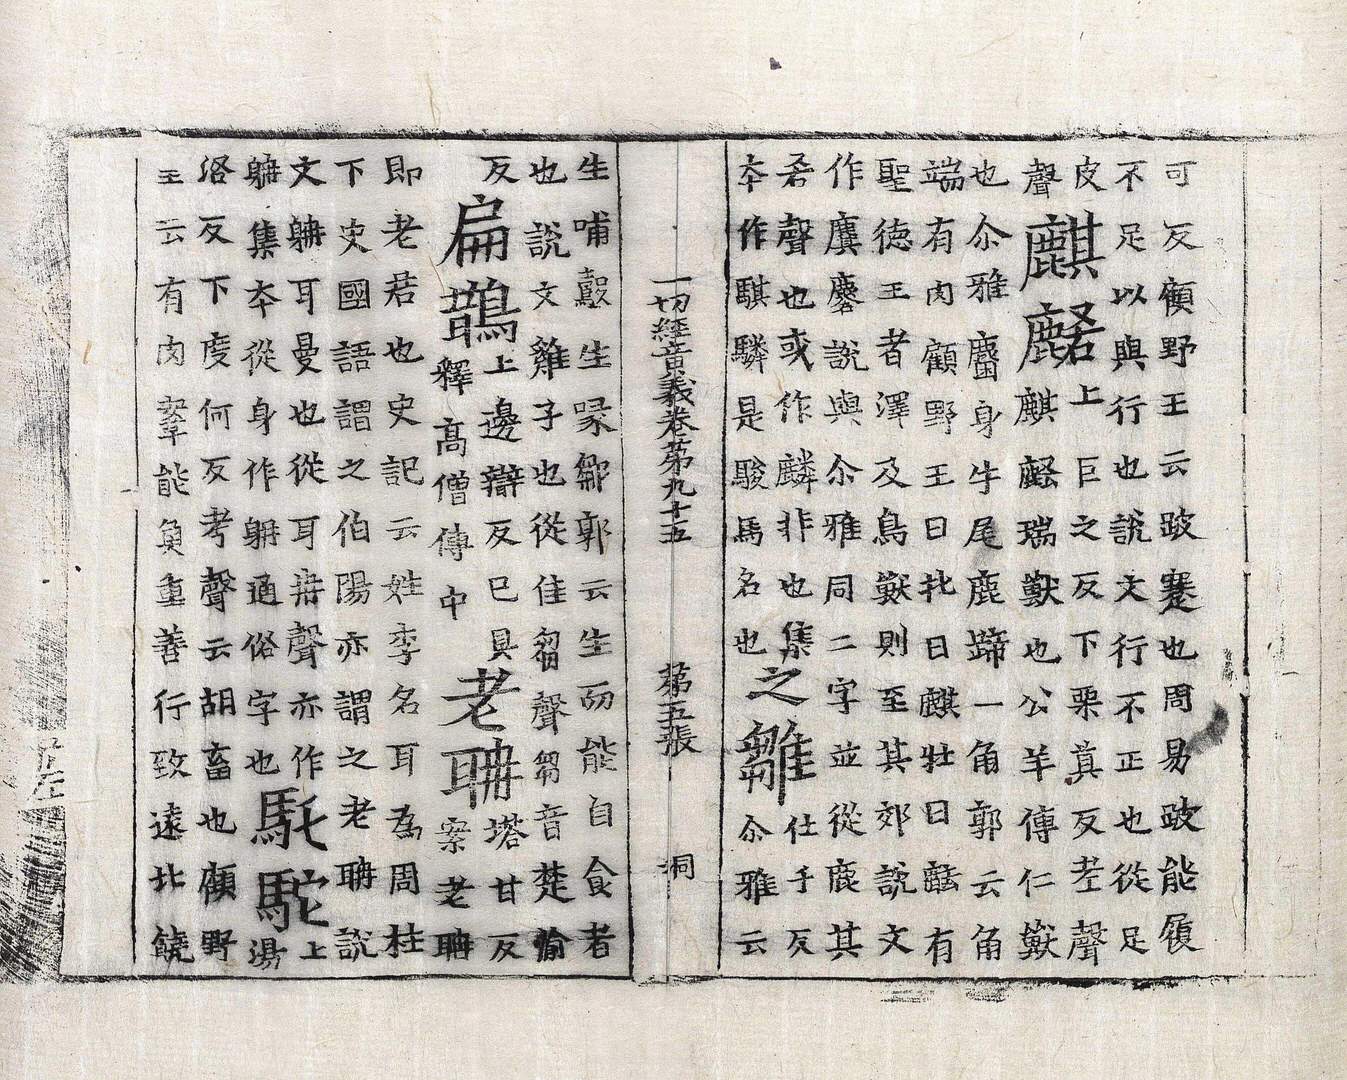 可反顧野王云跛蹇也周易跛能履
不足以與行也說文行不正也從足
皮聲
麒麐上巨之反下栗真反孝聲
麒麐瑞獸也公羊傳仁獸
也尒雅麕身牛尾鹿蹄一角郭云角
端有肉顧野王曰牝曰麒牡曰麐有
聖德王者澤及鳥獸則至其郊說文
作麌麐說與尒雅同二字並從鹿其
吝聲也或作麟非也集
夲作騏驎是駿馬名也
之雛仕于反
尒雅云
一切經音義卷苐九十五 苐五張 洞
生哺鷇生喙鄒郭云生而能自食者
也說文雞子也從隹芻聲芻音楚愉
反
扁鵲上邊辯反已具
釋高僧傳中
老聃塔甘反
案老聃
即老君也史記云姓李名耳為周柱
下史國語謂之伯陽亦謂之老聃說
文聃耳曼也從耳冉聲亦作
躭集夲從身作躭通俗字也
馲駝上湯
洛反下度何反考聲云胡畜也顧野
王云有肉鞌能負重善行致遠北饒